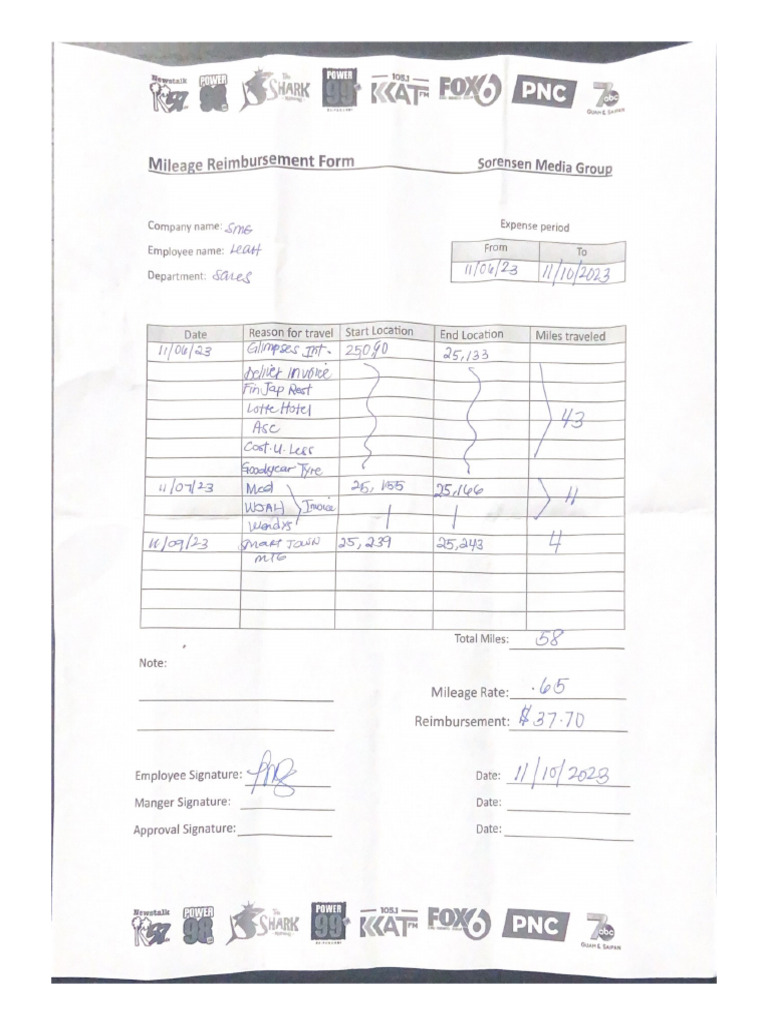 Newstalk K57 POWER 98 The SHARK POWER 99 105.1 KKAT FM FOX6 PNC 7 abc GUAM & SAIPAN
Mileage Reimbursement Form Sorensen Media Group
Company name: SMG Expense period
Employee name: LEAH From To
Department: Sales 11/06/23 11/10/2023
Date Reason for travel Start Location End Location Miles traveled
11/06/23 Glimpses Int. 25090 25,133
Deliver invoice
Fin Jap Rest
Lotte Hotel 43
Asc
Cost-U-Less
Goodyear Tyre
11/07/23 Mcd 25,155 25,166 11
Invoice
Wendys
11/09/23 25,239 25,243 4
MTG
Total Miles: 58
Note:
Mileage Rate: .65
Reimbursement: $37.70
Employee Signature: Date: 11/10/2023
Manger Signature: Date:
Approval Signature: Date:
Newstalk K57 POWER 98 The SHARK POWER 99 105.1 KKAT FM FOX6 PNC 7 abc GUAM & SAIPAN